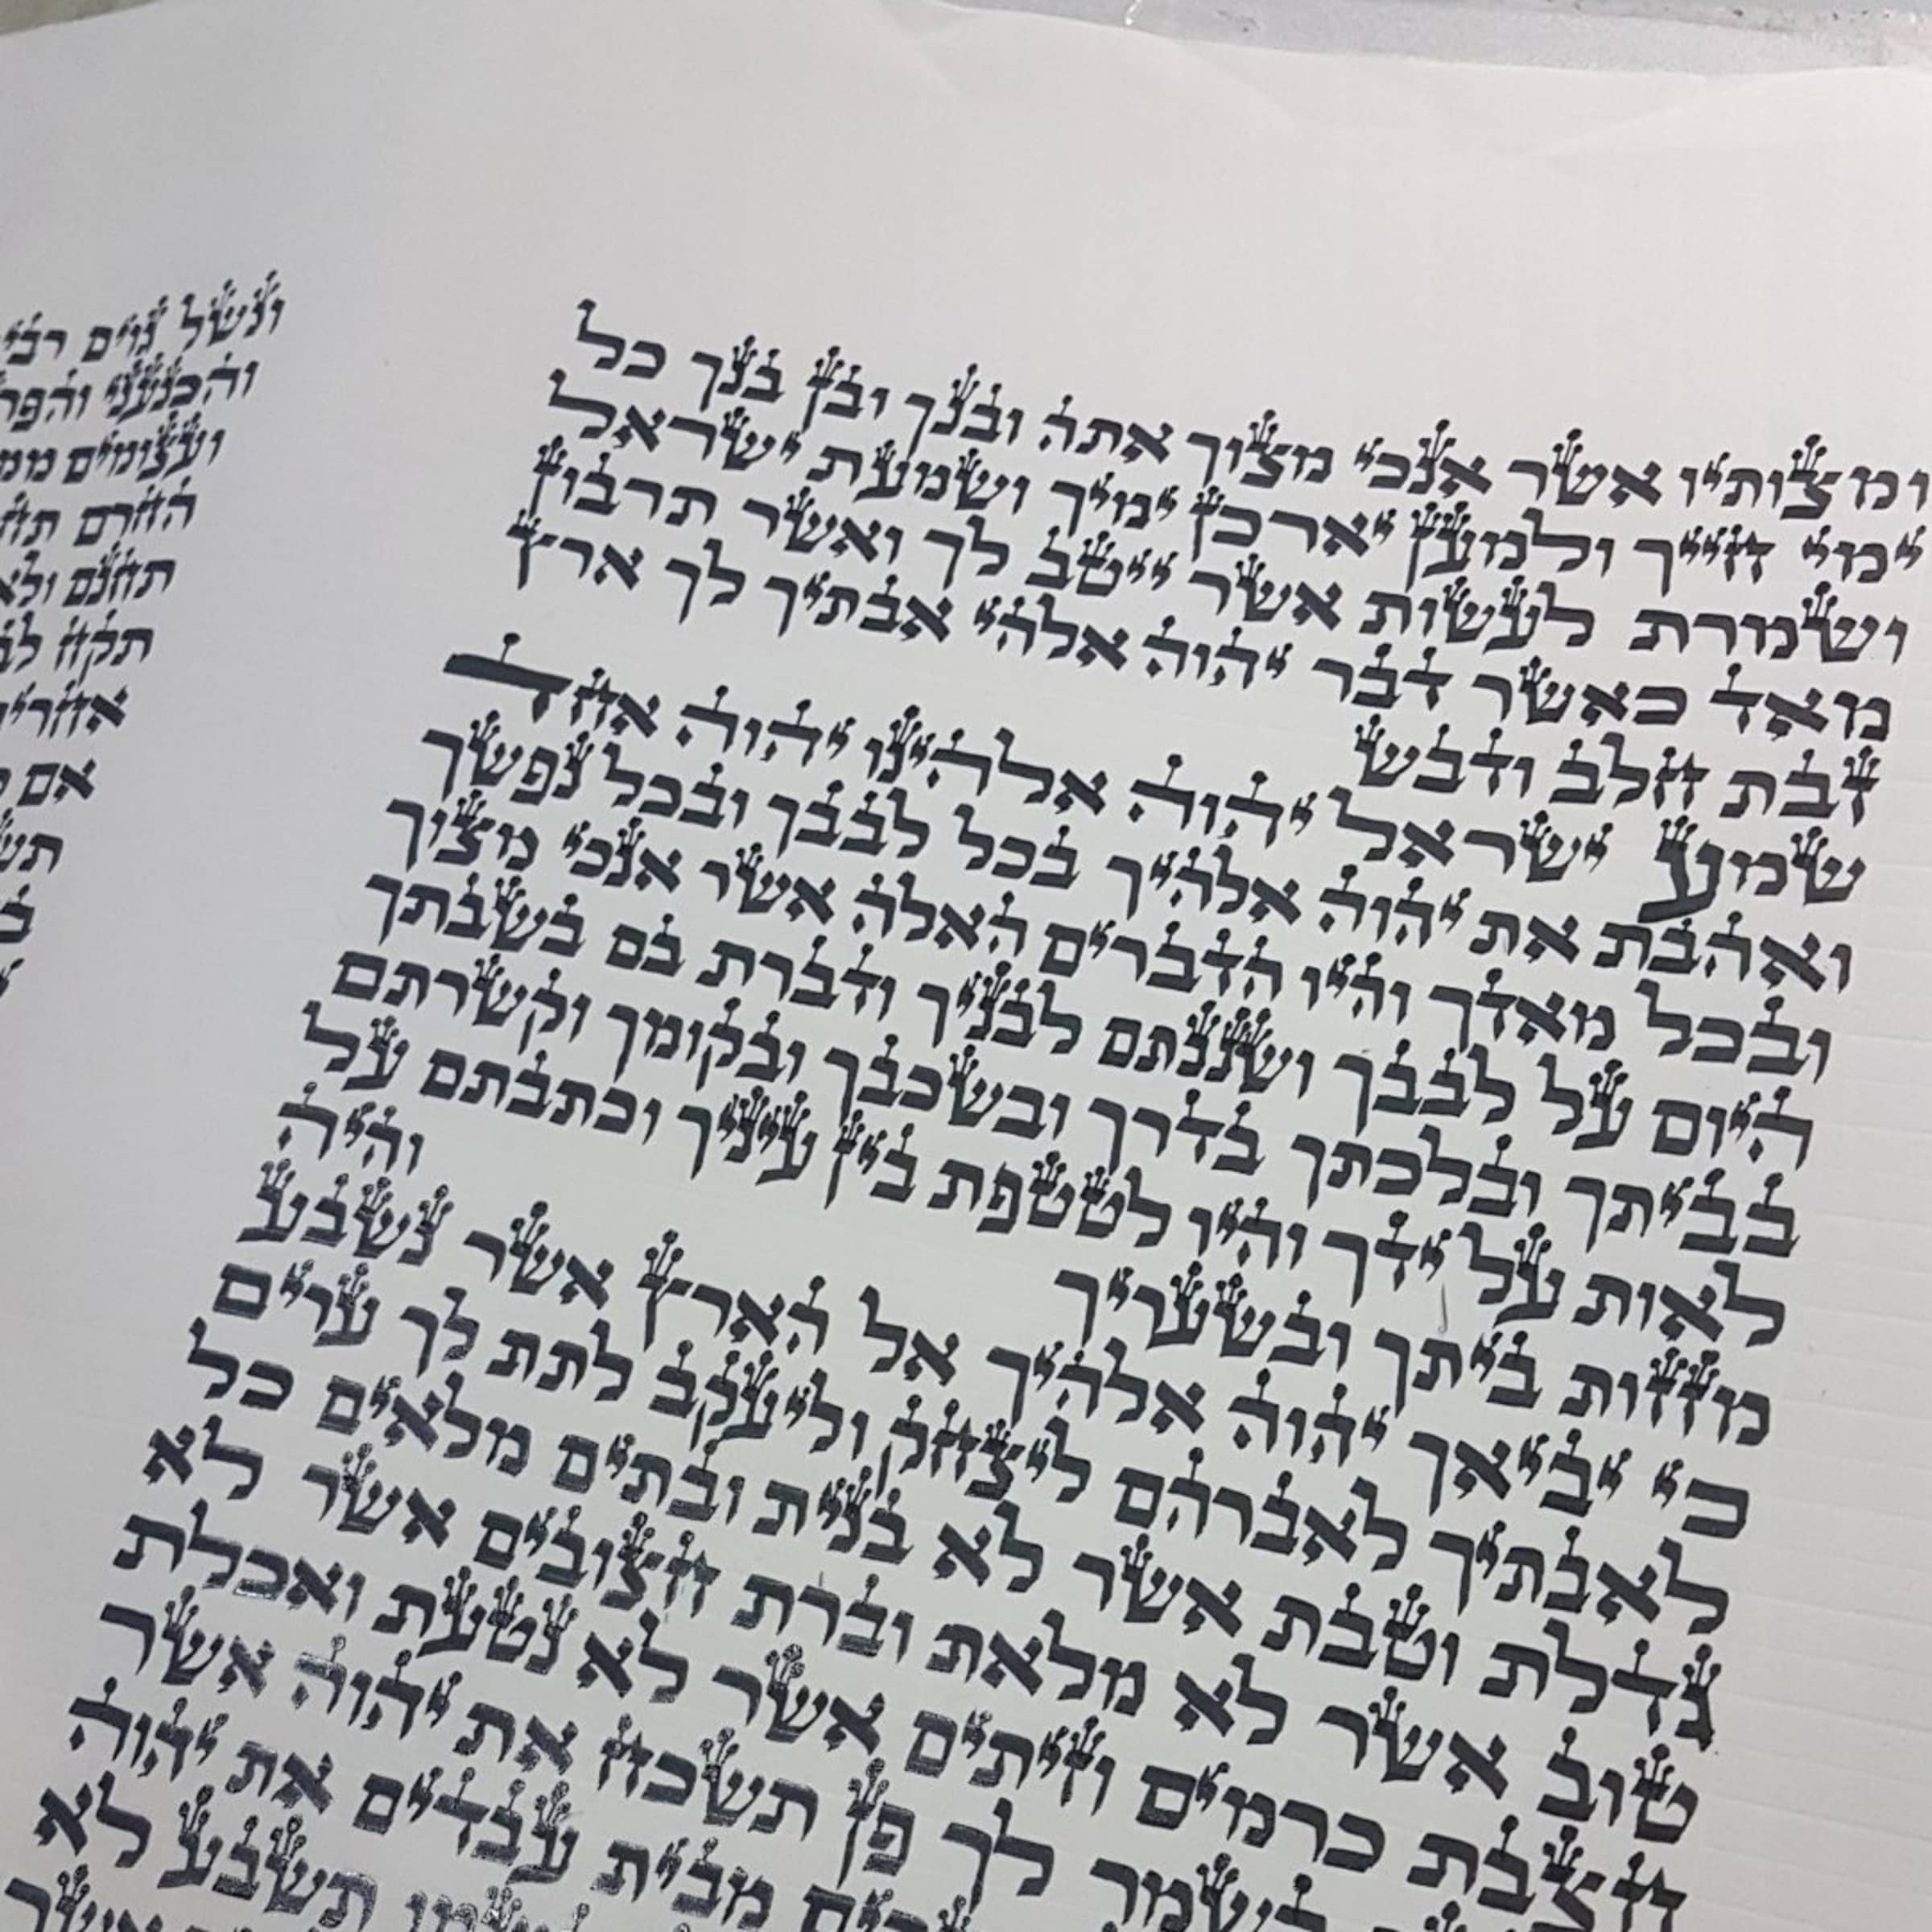 ומצותיו אשר אנכי מצוך אתה ובנך ובן בנך כל
ימי חייך ולמען יארכן ימיך ושמעת ישראל
ושמרת לעשות אשר ייטב לך ואשר תרבון
מאד כאשר דבר יהוה אלהי אבתיך לך ארץ
זבת חלב ודבש
שמע ישראל יהוה אלהינו יהוה אחד
ואהבת את יהוה אלהיך בכל לבבך ובכל נפשך
ובכל מאדך והיו הדברים האלה אשר אנכי מצוך
היום על לבבך ושננתם לבניך ודברת בם בשבתך
בביתך ובלכתך בדרך ובשכבך ובקומך וקשרתם
לאות על ידך והיו לטטפת בין עיניך וכתבתם על
מזזות ביתך ובשעריך והיה
כי יביאך יהוה אלהיך אל הארץ אשר נשבע
לאבתיך לאברהם ליצחק וליעקב לתת לך ערים
גדלת וטבת אשר לא בנית ובתים מלאים כל
טוב אשר לא מלאת וברת חצובים אשר לא
חצבת כרמים וזיתים אשר לא נטעת ואכלת
השמר לך פן תשכח את יהוה אשר
מבית עבדים את יהוה
תשבע לא
אשר
ונשל גוים
והכנעני
ועצומים
החרם
תחנם
תקח
אם